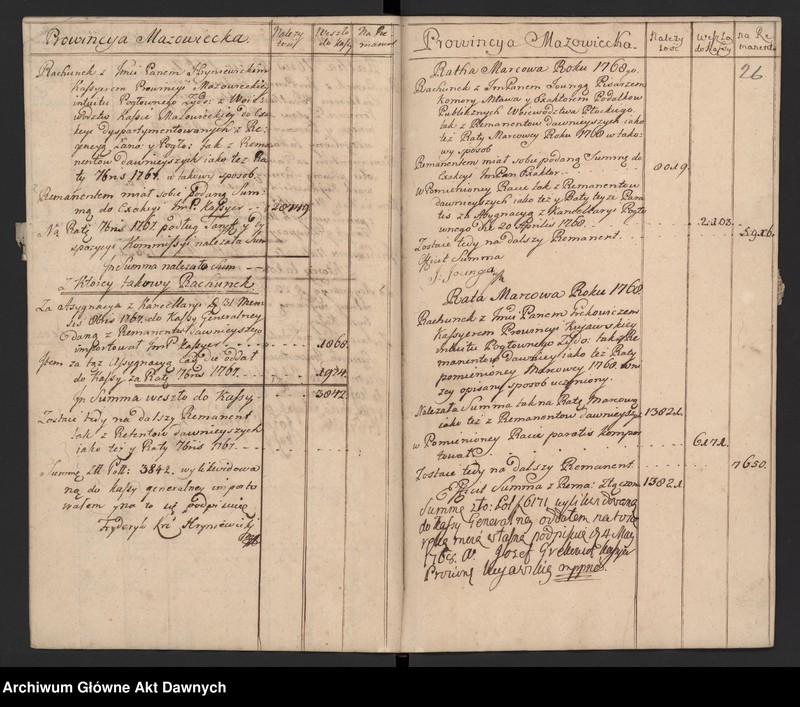 Prowincya Mazowiecka.
Należy
tość
Weszło
do kassy
Na Re
manent
Rachunek z Jmć Panem Hryniewickim
Kassyerem Prowincyi Mazowieckiey
intuitu Pogłownego Żydo: z Woie
wodztw Kassie Mazowieckiey do
Dyspartymentowanych z Re-
tak z Rema
nentow dawnieyszych iako też Ra
ty 7bris 1767. w takowy sposob.
Remanentem miał sobie podaną Sum-
mę do Exakcyi JmP. Kassyer
28749
Na Ratę 7bris 1767 podług
spozycyi Kommissyi należała Sum
Jn Summa należało Sum
Z Ktorey takowy Rachunek.
Za Asygnacyą z Kancellaryi D. 31 Men
sis 8bris 1767. do Kassy Generalney
daną z Remanentu dawnieyszego
importował JmP. Kassyer
1868.
Jtem za taż Assygnacyą oddał
do Kassy za Ratę 7bris 1767.
1974
Jn Summa weszło do Kassy
3842
Zostaie tedy na dalszy Remanent
tak z Retentow dawnieyszych
iako też y Raty 7bris 1767
Summę Złł Poll: 3842. wylikwidowa
ną do kassy generalney importo
wałem na to się podpisuię
Fryderyk Hryniewicki
Prowincya Mazowiecka.
Należy
tość
Weszło
do Kassy
na Re
manent
26
Ratha Marcowa Roku 1768go.
Rachunek z JmPanem Joungą Pisarzem
Komory Mława y Exaktorem Podatkow
Publicznych Woiewodztwa Płockiego
tak z Remanentow dawnieyszych iako
też Raty Marcowey Roku 1768 w tako-
wy sposob
Remanentem miał sobie podaną Summę do
Exakcyi JmPan Exaktor
8019.
W Pomienioney Racie tak z Remanentow
dawnieyszych iako też y Raty teyże
tes za Asygnacyą z Kancellaryi Pogło
wnego die 20 Aprilis 1768.
2103.
Zostaie tedy na dalszy Remanent.
5916.
Efficit Summa
J. Jounga
Rata Marcowa Roku 1768.
Rachunek z Jmć Panem Grekowiczem
Kassyerem Prowincyi Kujawskiey
intuitu Pogłownego Żydo: tak z Re
manentow Dawniey iako też Raty
pomienioney Marcowey 1768. niż
szey opisany sposob uczyniony.
Należała Summa tak na Ratę Marcową
iako też z Remanentow dawnieyszy
13821.
w Pomienioney Racie paratis kompor
towat
6171.
Zostaie tedy na dalszy Remanent.
7650.
Efficit Summa z Rema: Złączon
13821.
Summę zło: Pol 6171 wylikwidowaną
do kassy Generalney oddałem na to
ręką mą własną podpisuię D. 4 May
1768. Josef Kassyer
Prowincyi Kujawskiey mppria.
Archiwum Główne Akt Dawnych